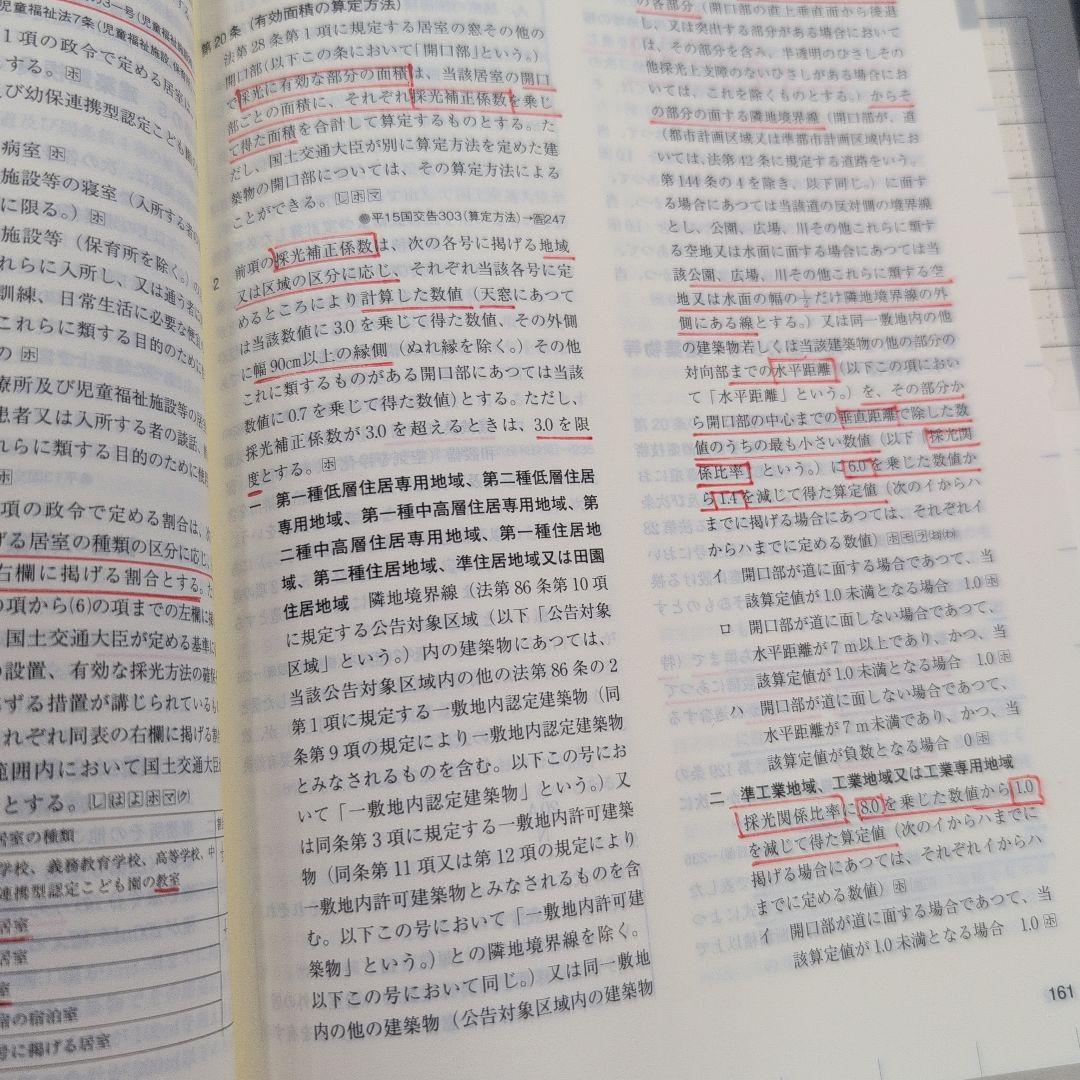 の3一号(児童福祉
児童福祉法7条(児童福祉施設、保育
1項の政令で定める居室は
する。ホ
及び幼保連携型認定こども園の
病室 ホ
施設等の寝室(入所する者の
に限る。)ホ
施設等(保育所を除く。)の
れらに入所し、又は通う者に
訓練、日常生活に必要な便宜
これらに類する目的のために
の ホ
療所及び児童福祉施設等の居室
患者又は入所する者の談話、
れらに類する目的のために使用
ホ
項の政令で定める割合は、
げる居室の種類の区分に応じ
右欄に掲げる割合とする。た
の項から(6)の項までの左欄に掲
国土交通大臣が定める基準に
の設置、有効な採光方法の確保
ずる措置が講じられているも
れぞれ同表の右欄に掲げる割
範囲内において国土交通大臣
とする。
居室の種類
学校、義務教育学校、高等学校、中
連携型認定こども園の教室
居室
居室
室
宿の宿泊室
号に掲げる居室
第20条(有効面積の算定方法)
法第28条第1項に規定する居室の窓その他の
開口部(以下この条において「開口部」という。)
で採光に有効な部分の面積は、当該居室の開口
部ごとの面積に、それぞれ採光補正係数を乗じ
て得た面積を合計して算定するものとする。た
だし、国土交通大臣が別に算定方法を定めた建
築物の開口部については、その算定方法による
ことができる。
平15国交告303(算定方法)→告247
2 前項の採光補正係数は、次の各号に掲げる地域
又は区域の区分に応じ、それぞれ当該各号に定
めるところにより計算した数値(天窓にあつて
は当該数値に3.0を乗じて得た数値、その外側
に幅90cm以上の縁側(ぬれ縁を除く。)その他
これに類するものがある開口部にあつては当該
数値に0.7を乗じて得た数値)とする。ただし、
採光補正係数が3.0を超えるときは、3.0を限
度とする。ホ
一 第一種低層住居専用地域、第二種低層住居
専用地域、第一種中高層住居専用地域、第
二種中高層住居専用地域、第一種住居地
域、第二種住居地域、準住居地域又は田園
住居地域 隣地境界線(法第86条第10項
に規定する公告対象区域(以下「公告対象
区域」という。)内の建築物にあつては、
当該公告対象区域内の他の法第86条の2
第1項に規定する一敷地内認定建築物(同
条第9項の規定により一敷地内認定建築物
とみなされるものを含む。以下この号にお
いて「一敷地内認定建築物」という。)又
は同条第3項に規定する一敷地内許可建築
物(同条第11項又は第12項の規定により
一敷地内許可建築物とみなされるものを含
む。以下この号において「一敷地内許可建
築物」という。)との隣地境界線を除く。
以下この号において同じ。)又は同一敷地
内の他の建築物(公告対象区域内の建築物
の各部分(開口部の直上垂直面から後退
し、又は突出する部分がある場合において
は、その部分を含み、半透明のひさしその
他採光上支障のないひさしがある場合にお
いては、これを除くものとする。)からそ
の部分の面する隣地境界線(開口部が、道
(都市計画区域又は準都市計画区域内にお
いては、法第42条に規定する道路をいう。
第144条の4を除き、以下同じ。)に面す
る場合にあつては当該道の反対側の境界線
とし、公園、広場、川その他これらに類す
る空地又は水面に面する場合にあつては当
該公園、広場、川その他これらに類する空
地又は水面の幅の1/2だけ隣地境界線の外
側にある線とする。)又は同一敷地内の他
の建築物若しくは当該建築物の他の部分の
対向部までの水平距離(以下この項におい
て「水平距離」という。)を、その部分か
ら開口部の中心までの垂直距離で除した数
値のうちの最も小さい数値(以下「採光関
係比率」という。)に6.0を乗じた数値か
ら1.4を減じて得た算定値(次のイからハ
までに掲げる場合にあつては、それぞれイ
からハまでに定める数値)
イ 開口部が道に面する場合であつて、当
該算定値が1.0未満となる場合 1.0ホ
ロ 開口部が道に面しない場合であつて、
水平距離が7m以上であり、かつ、当
該算定値が1.0未満となる場合 1.0ホ
ハ 開口部が道に面しない場合であつて、
水平距離が7m未満であり、かつ、当
該算定値が負数となる場合 0ホ
二 準工業地域、工業地域又は工業専用地域
採光関係比率に8.0を乗じた数値から1.0
を減じて得た算定値(次のイからハまでに
掲げる場合にあつては、それぞれイからハ
までに定める数値)ホ
イ 開口部が道に面する場合であつて、当
該算定値が1.0未満となる場合 1.0ホ
161